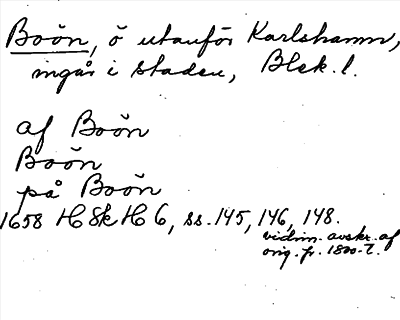 Boön, ö utanför Karlshamn,
ingår i staden, Blek. l.
af Boön
Boön
på Boön
1658 HSkH 6, ss. 145, 146, 148.
vidim. avskr. af
orig. fr. 1800-t.